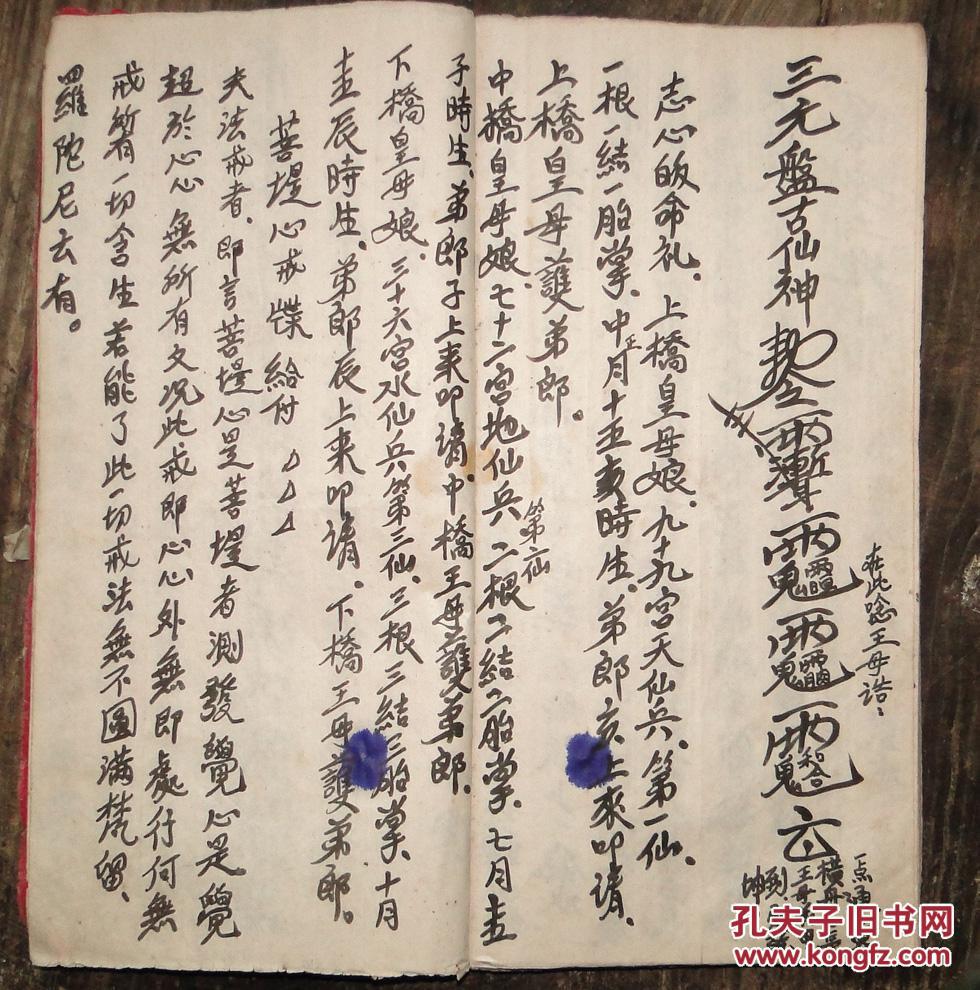 三元盤古仙神 勅令
在此唸王母誥:
志心皈命礼.上橋皇母娘.九十九宮天仙兵.第一仙.
一根一結一胎掌.中正月十五亥時生.弟郎亥上來叩請.
上橋皇母護弟郎.
中橋皇母娘.七十二宮地仙兵第二仙二根二結二胎掌.七月圭
子時生.弟郎子上来叩請.中橋王母護弟郎.
下橋皇母娘.三十六宮水仙兵第三仙.三根三結三胎掌.十月
圭辰時生.弟郎辰上来叩請.下橋王母護弟郎。
菩堤心戒牒給付
夫法戒者.即言菩堤心是菩堤者測發覺心是覺
超於心心無所有文况此戒即心心外無即處行何無
戒等一切含生若能了此一切戒法無不圓满梵留.
羅陀尼去有。
孔夫子旧书网
www.kongfz.com